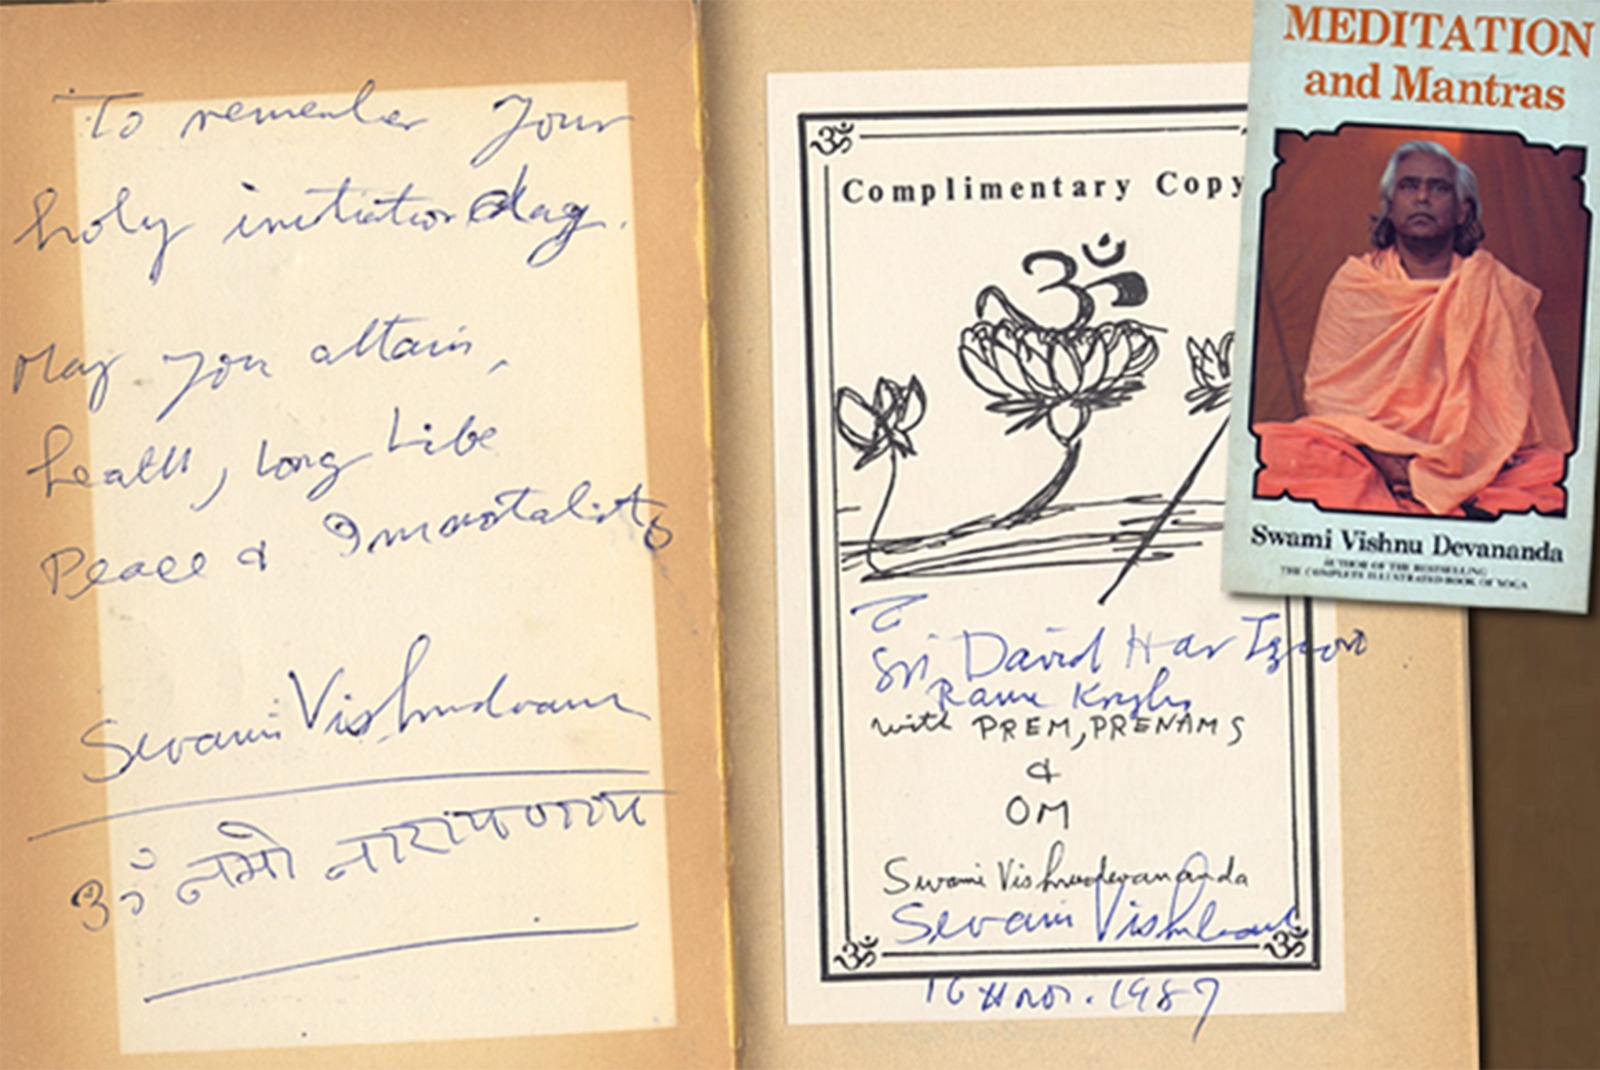 To remember your
holy initiation day.
May you attain,
health, long Life
Peace & Immortality
Swami Vishnudevananda
ॐ नमो नारायणाय
Complimentary Copy
ॐ
To
Sri David Har Tzion
Rama
with PREM, PRENAMS
&
OM
Swami Vishnudevananda
Swami Vishnudevananda
16 Nov. 1987
MEDITATION
and Mantras
Swami Vishnu Devananda
AUTHOR OF THE BESTSELLING
THE COMPLETE ILLUSTRATED BOOK OF YOGA